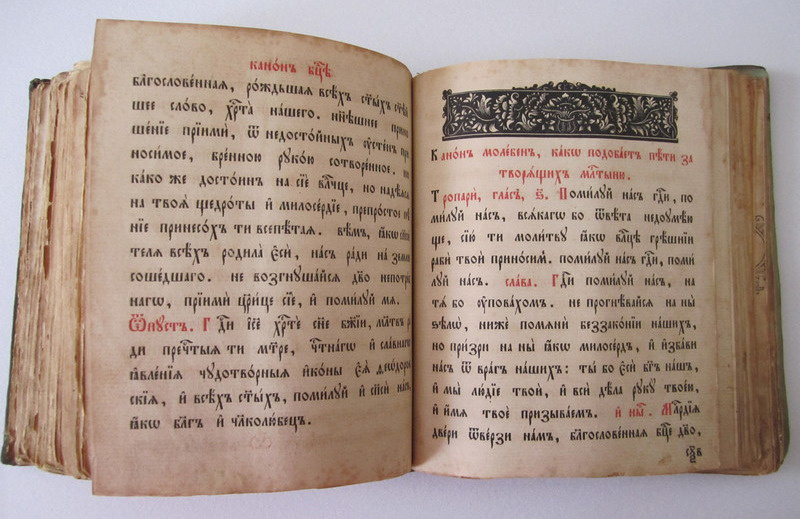 канѡ́нъ бцⷣѣ
блгⷭослове́нная, ро́ждьшая всѣ́хъ ст҃ы́хъ
шее сло́во, хрⷭта̀ на́шего. нн҃ѣшнее
ше́нїе прїимѝ, ѿ недосто́йныхъ ᲂу҆сте́нъ
носи́мое, бре́нною рꙋко́ю сотворе́нное.
ка́ко же досто́ин на сїѐ влⷣчце, но надѣ́яся
на твоѧ̀ щедрѡ́ты и҆ милосе́рдїе, препросто́е
нїе принесо́хъ ти всепѣ́тая. вѣ́мъ, ꙗ҆́кѡ
теля всѣ́хъ родила̀ є҆сѝ, на́съ ра́ди на зе́млю
соше́дшаго. не возгнꙋша́йся дв҃о
нагѡ, прїимѝ црⷣице сїѐ, и҆ поми́лꙋй мя.
Ѿпꙋстъ. Гдⷭи і҆се хрⷭтѐ сн҃е бж҃їи, мл҃твъ ра
ди пречⷭтыя ти мт҃ре, чтⷭна́гѡ и҆ сла́внаго
ꙗ҆вле́нїя чюдотво́рныя и҆ко́ны є҆ѧ̀ ѳео́доров
скїя, и҆ всѣ́хъ ст҃ы́хъ, поми́лꙋй и҆ сп҃сѝ на́съ
ꙗ҆́кѡ бл҃гъ и҆ чл҃колю́бецъ.
Кано́нъ моле́бенъ, ка́кѡ подоба́етъ пѣ́ти за
творѧ́щихъ млⷭтыню.
Тропарѝ, гла́съ, ѕ҃. Поми́лꙋй на́съ гдⷭи, по
ми́лꙋй на́съ, всѧ́кагѡ бо ѿвѣ́та недоꙋмѣ́ю
ще, сїю̀ ти моли́твꙋ ꙗ҆́кѡ влⷣцѣ грѣ́шнїи
рабѝ твоѝ прино́сим. поми́лꙋй на́съ гдⷭи, поми
лꙋй на́съ. сла́ва. Гдⷭи поми́лꙋй на́съ, на
тѧ̀ бо ᲂу҆пова́хом. не прогнѣ́вайся на ны̀
ѕѣлѡ̀, нижѐ помянѝ беззако́нїи на́шихъ,
но при́зри на ны̀ ꙗ҆́кѡ милосе́рдъ, и҆ и҆зба́ви
на́съ ѿ вра́гъ на́шихъ: ты́ бо є҆сѝ бг҃ъ на́шъ,
и҆ мы̀ лю́дїе твоѝ, и҆ всѝ дѣ́ла рꙋкꙋ̀ твоє́ю,
и҆ и҆́мя твоѐ призыва́ем. и҆ нн҃ѣ. Млⷭрдїя
две́ри ѿве́рзи на́мъ, блгⷭослове́нная бцⷣе дв҃о,